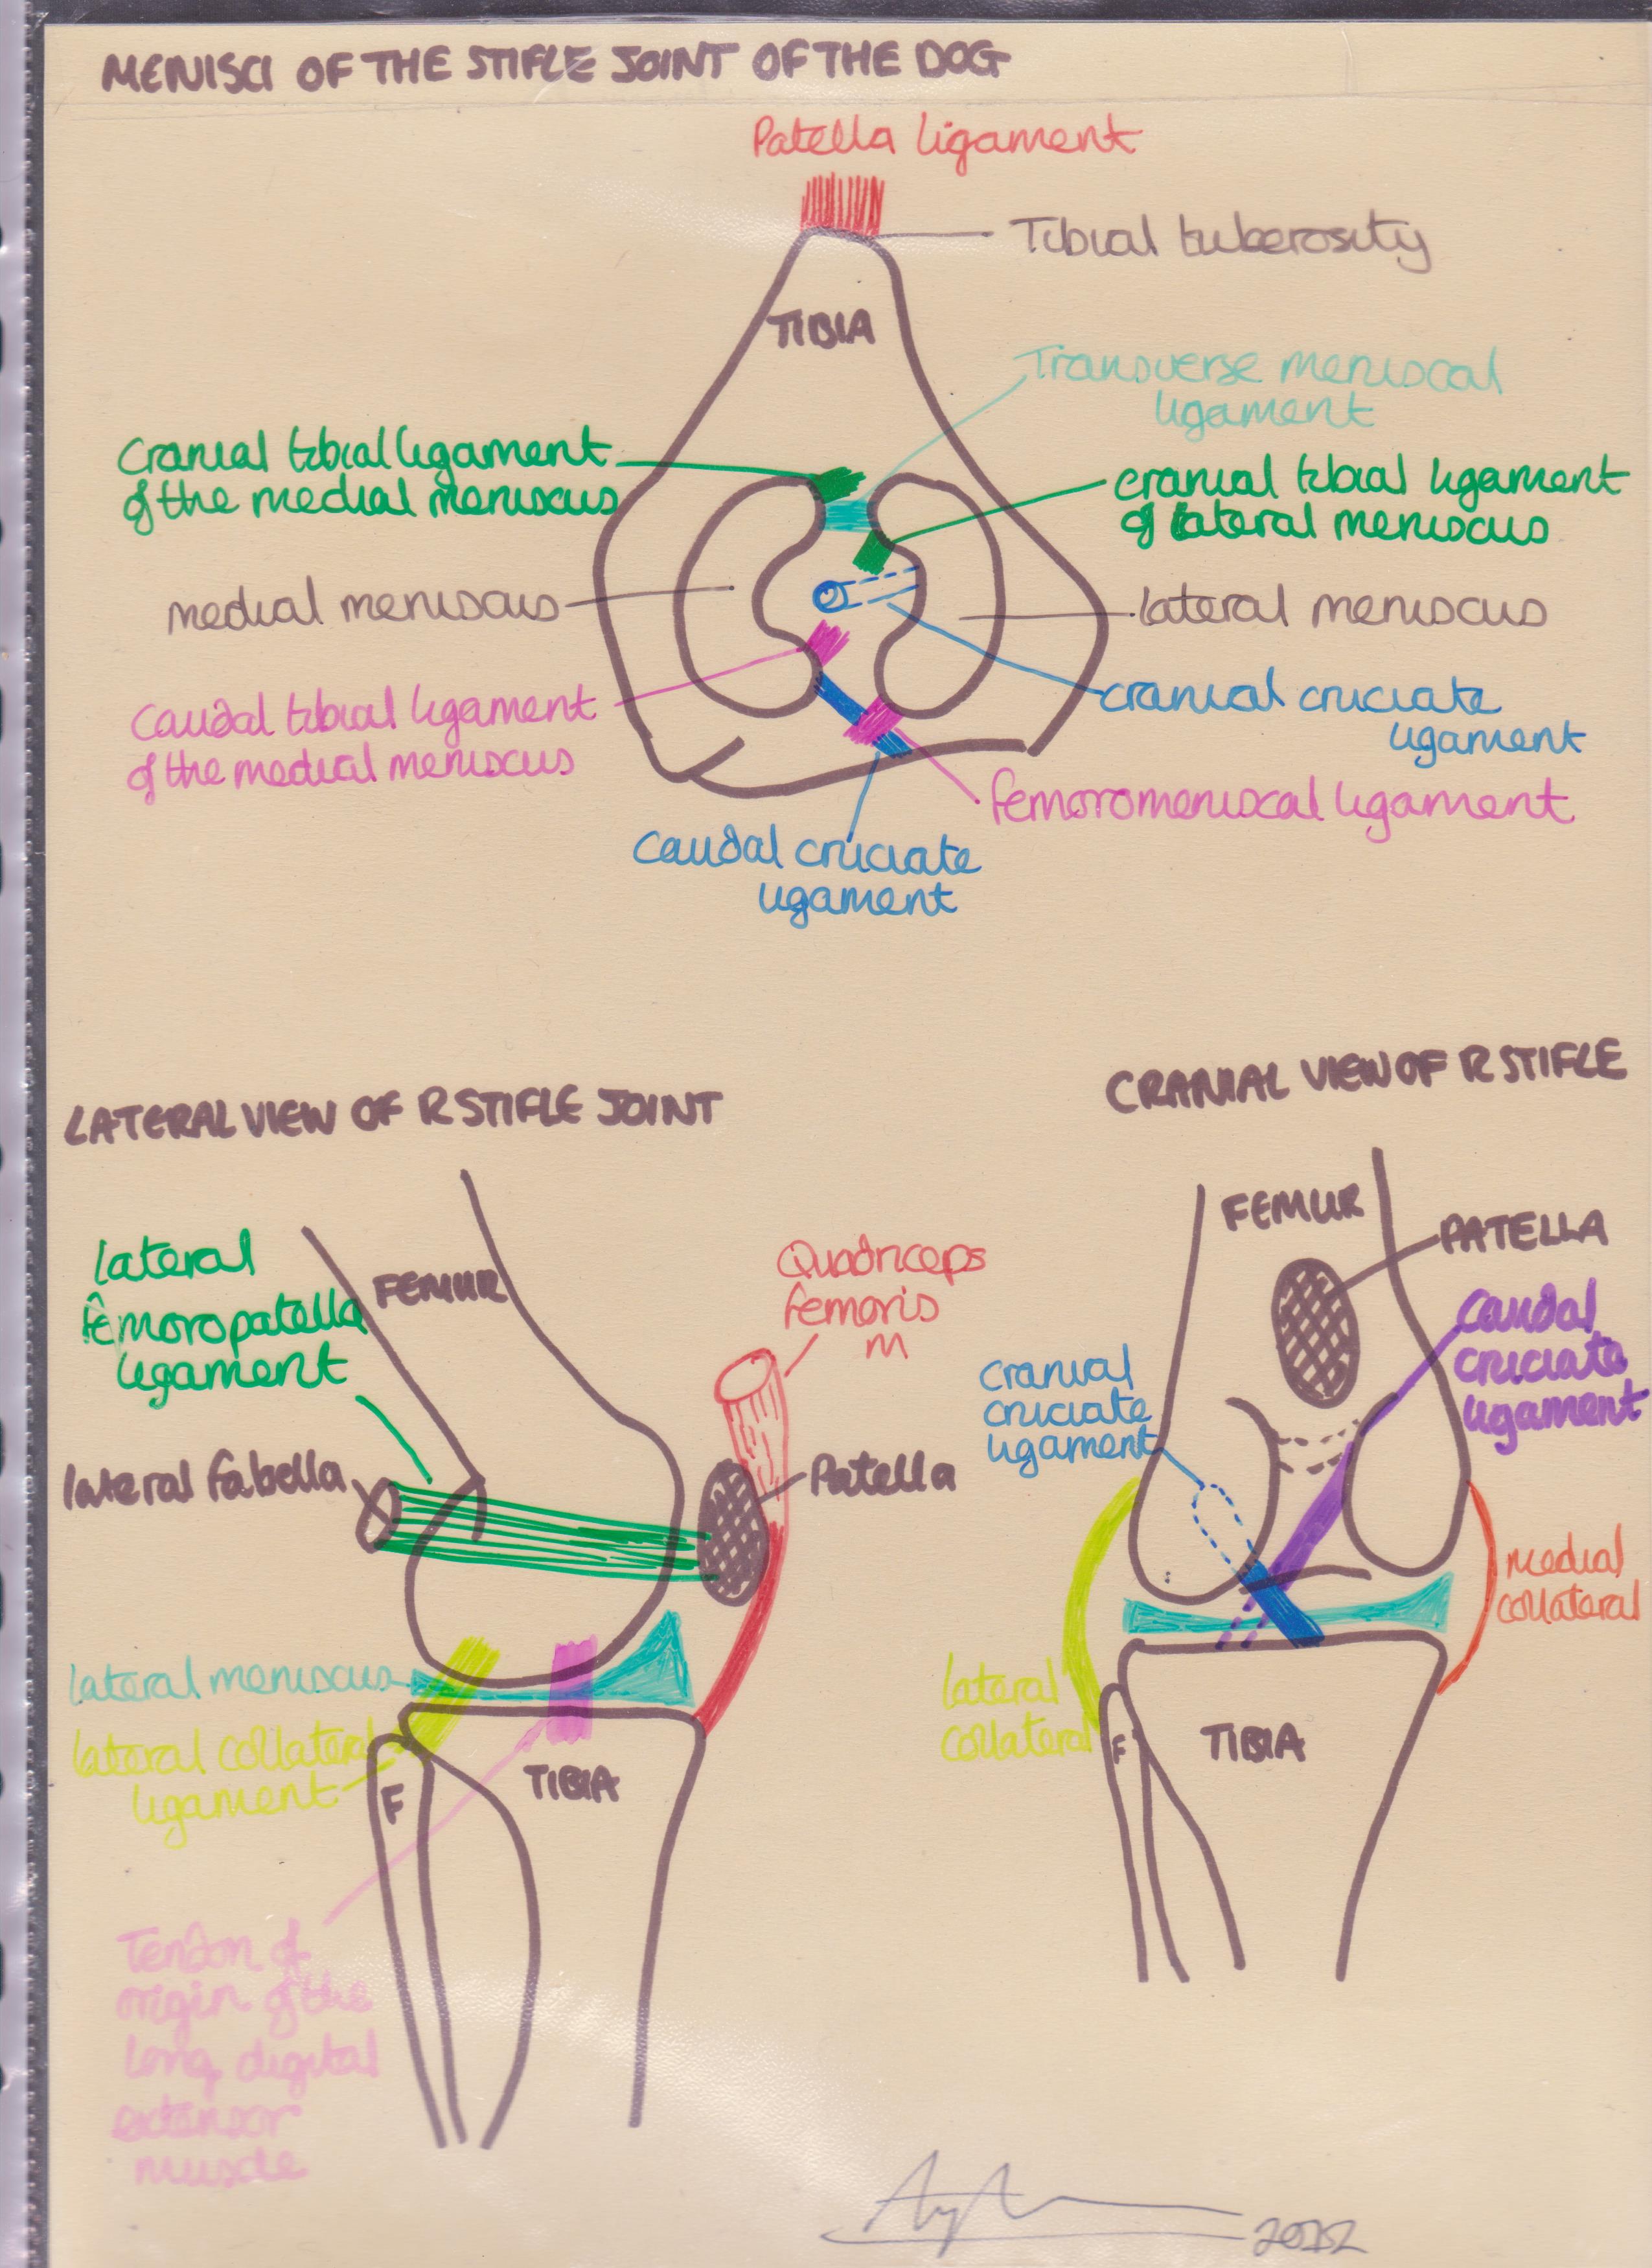 MENISCI OF THE STIFLE JOINT OF THE DOG
Patella ligament
Tibial tuberosity
TIBIA
Transverse meniscal
ligament
Cranial tibial ligament
of the medial meniscus
cranial tibial ligament
of lateral meniscus
medial meniscus
lateral meniscus
Caudal tibial ligament
of the medial meniscus
cranial cruciate
ligament
femoromeniscal ligament
Caudal cruciate
ligament
LATERAL VIEW OF R STIFLE JOINT
lateral
femoropatella
ligament
FEMUR
Quadriceps
femoris
m
lateral fabella
Patella
lateral meniscus
lateral collateral
ligament
F
TIBIA
Tendon of
origin of the
long digital
extensor
muscle
CRANIAL VIEW OF R STIFLE
FEMUR
PATELLA
Caudal
cruciate
ligament
cranial
cruciate
ligament
medial
collateral
lateral
collateral
F
TIBIA
2012